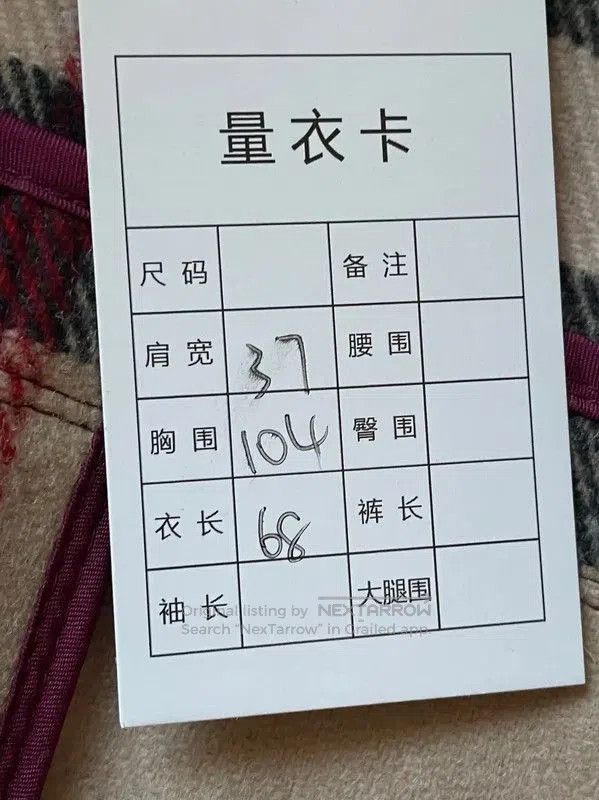 量衣卡
尺码 备注
肩宽 37 腰围
胸围 104 臀围
衣长 68 裤长
袖长 大腿围
Original listing by NEXTARROW
Search "NexTarrow" in Grailed app.